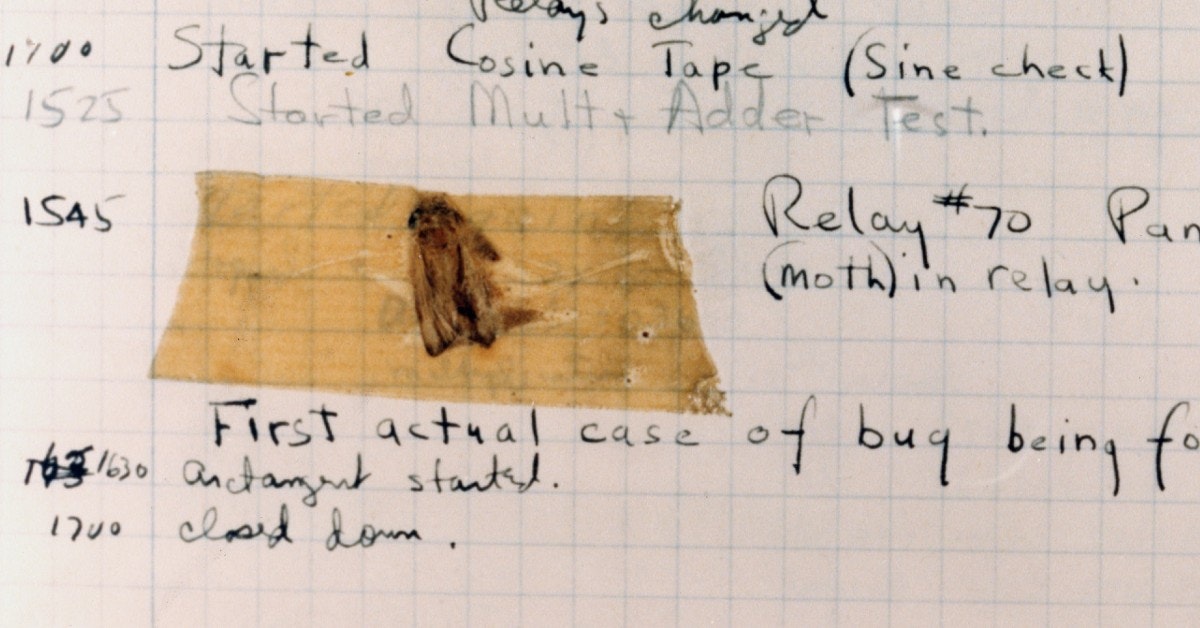 Relays changed
1700 Started Cosine Tape (Sine check)
1525 Started Mult + Adder Test.
1545 Relay #70 Pan
(moth) in relay.
First actual case of bug being fo
1630 arctangent started.
1700 closed down.